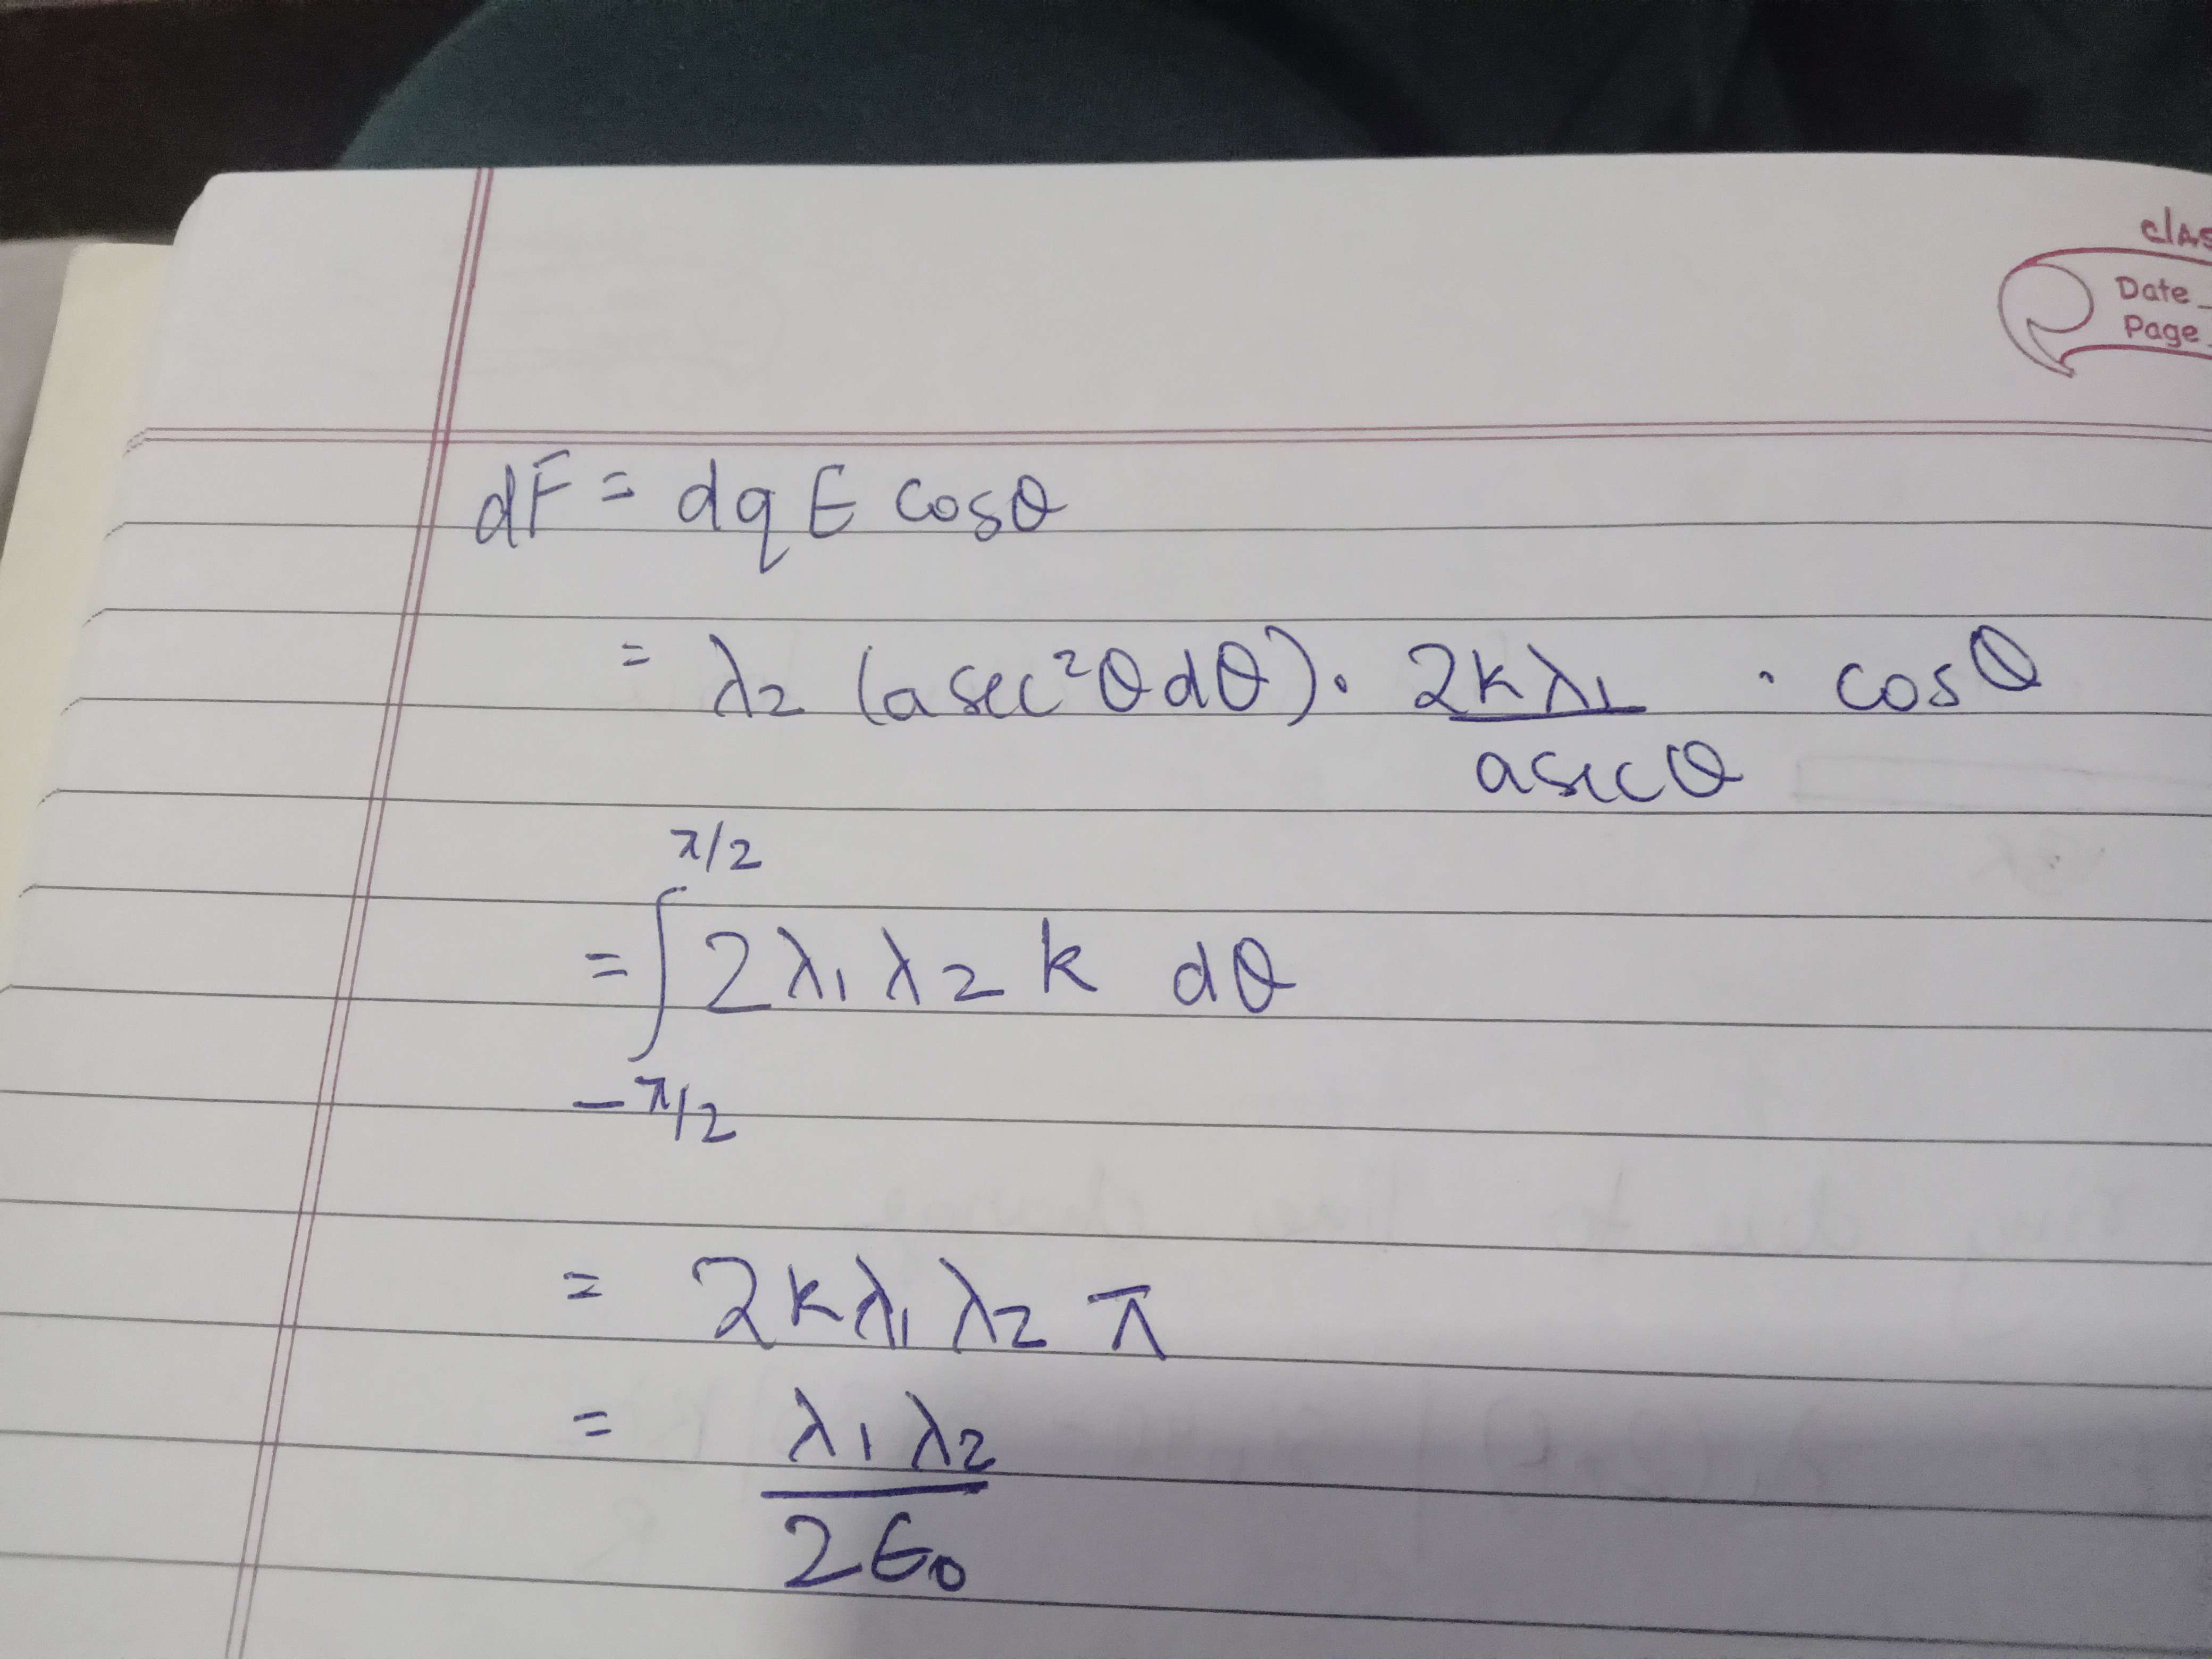 clas
Date
Page
dF = dq E cosθ
= λ2 (a sec²θ dθ) · 2kλ1 / a secθ · cosθ
= ∫_{-π/2}^{π/2} 2λ1 λ2 k dθ
= 2kλ1 λ2 π
= λ1 λ2 / 2ε0